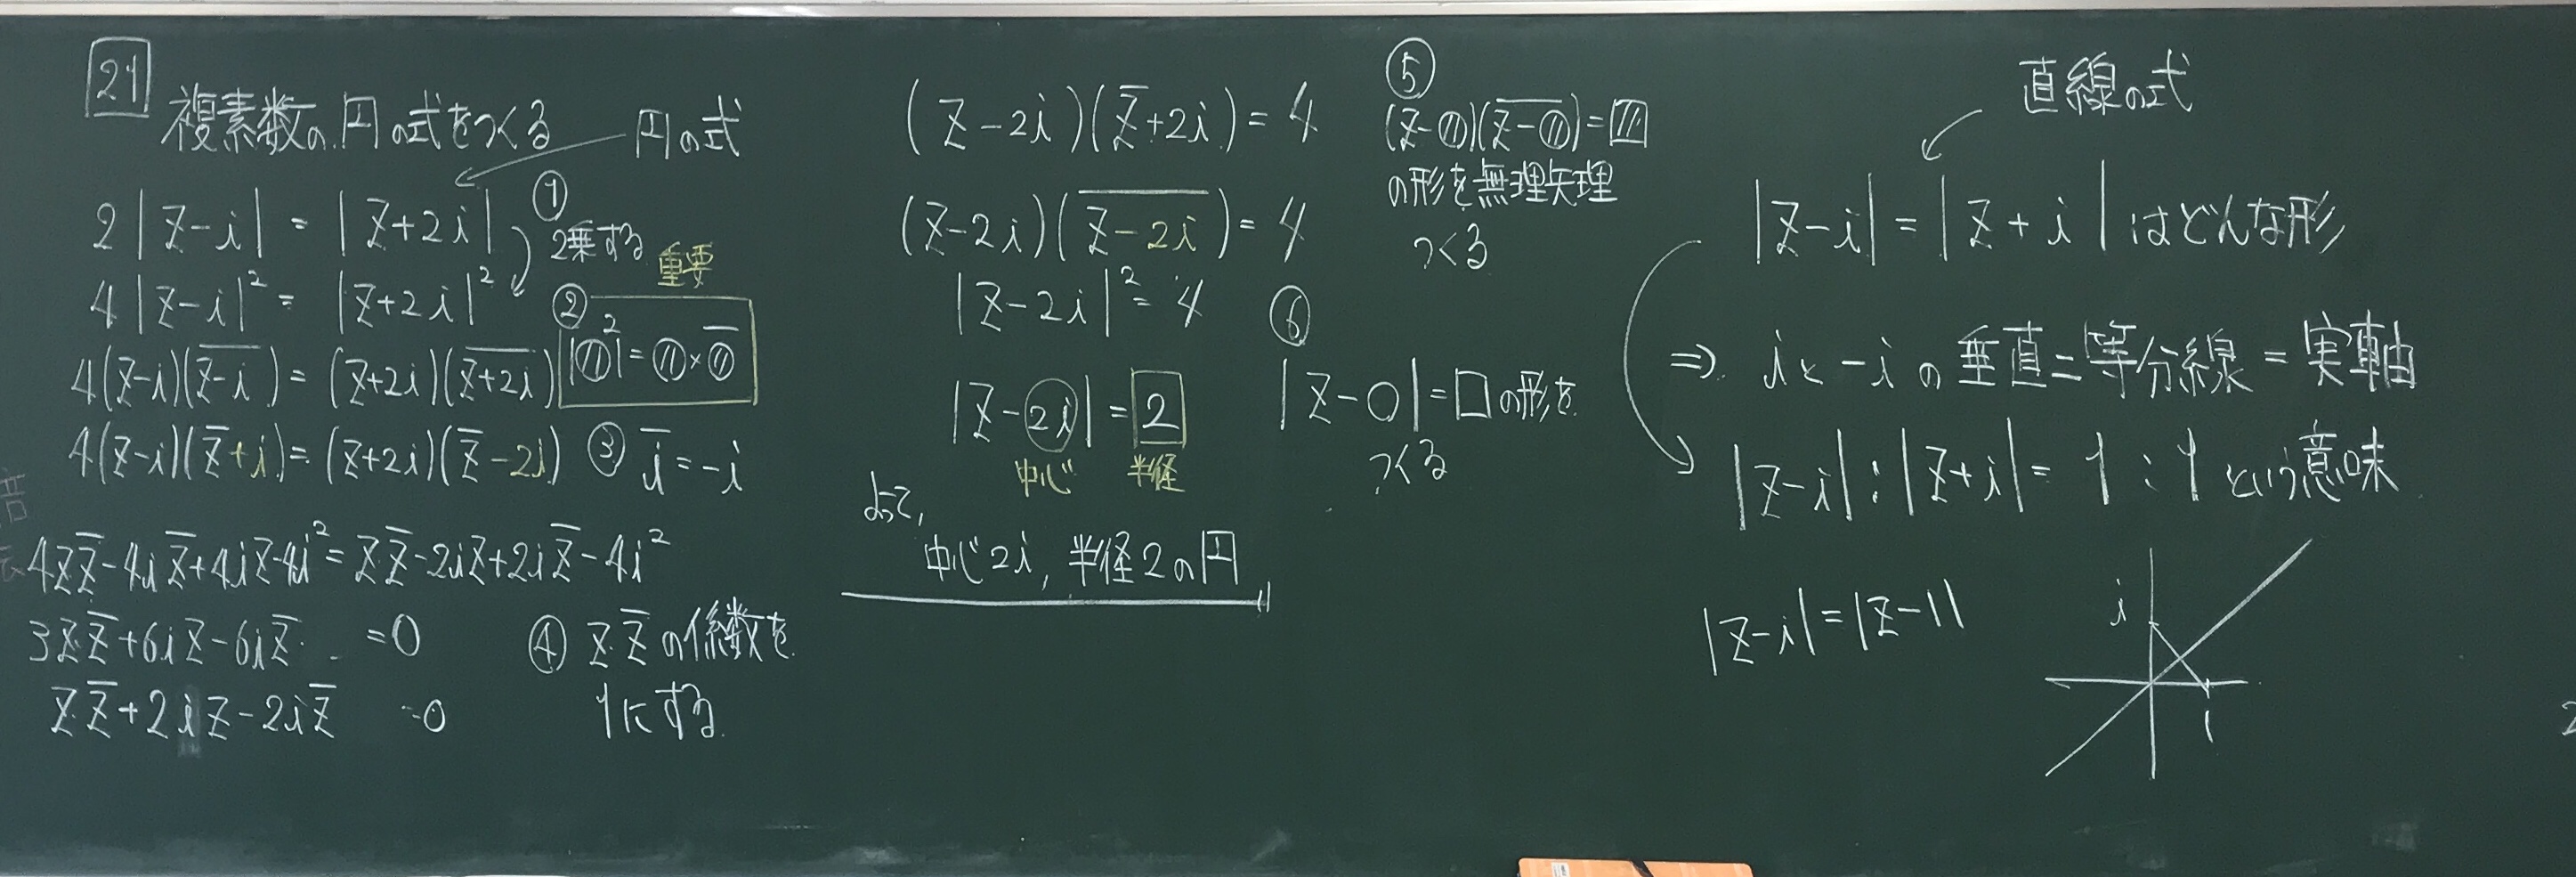 21
複素数の円の式をつくる
円の式
2|z-i| = |z+2i|
① 2乗する
4|z-i|² = |z+2i|²
重要
② |〇|² = 〇×〇̅
4(z-i)(\overline{z-i}) = (z+2i)(\overline{z+2i})
4(z-i)(z̅+i) = (z+2i)(z̅-2i)
③ i̅ = -i
4zz̅-4iz̅+4iz-4i² = zz̅-2iz+2iz̅-4i²
3zz̅+6iz-6iz̅ =0
④ zz̅の係数を
1にする
zz̅+2iz-2iz̅ =0
(z-2i)(z̅+2i) = 4
(z-2i)(\overline{z-2i}) = 4
|z-2i|² = 4
|z-2i| = 2
中心 半径
よって,
中心2i, 半径2の円
⑤
(z-〇)(\overline{z-〇})=□
の形を無理矢理
つくる
⑥
|z-〇|=□の形を
つくる
直線の式
|z-i| = |z+i| はどんな形
⇒ iと-iの垂直二等分線=実軸
|z-i|:|z+i| = 1:1 という意味
|z-i|=|z-1|
i
1